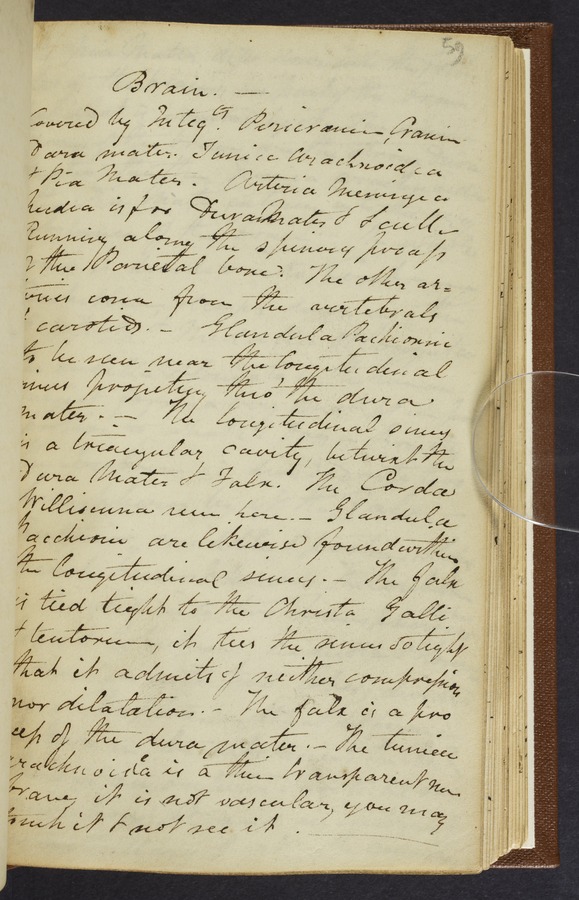 59
Brain. —
Covered by Integ.ts Pericranium, Cranium
Dura mater. Tunica Arachnoidea
& Pia Mater. Arteria Meningea
Media is fro Dura Mater & Scull
Running along the spinous process
of the Parietal bone. The other ar=
teries come from the vertebrals
& carotids. — Glandula Pachionie
to be seen near the longitudinal
sinus projecting thro' the dura
mater. — The longitudinal sinus
is a triangular cavity, betwixt the
Dura Mater & Falx. The Cordae
Willisianna seen here. — Glandula
Pacchioni are likewise found within
the longitudinal sinus. — The falx
is tied tight to the Christa Galli
& tentorium, it ties the sinus so tight
that it admits of neither compression
nor dilatation. — The falx is a pro
cess of the dura mater. — The tunica
arachnoida is a thin transparent mem
brane, it is not vascular, you may
touch it & not see it.